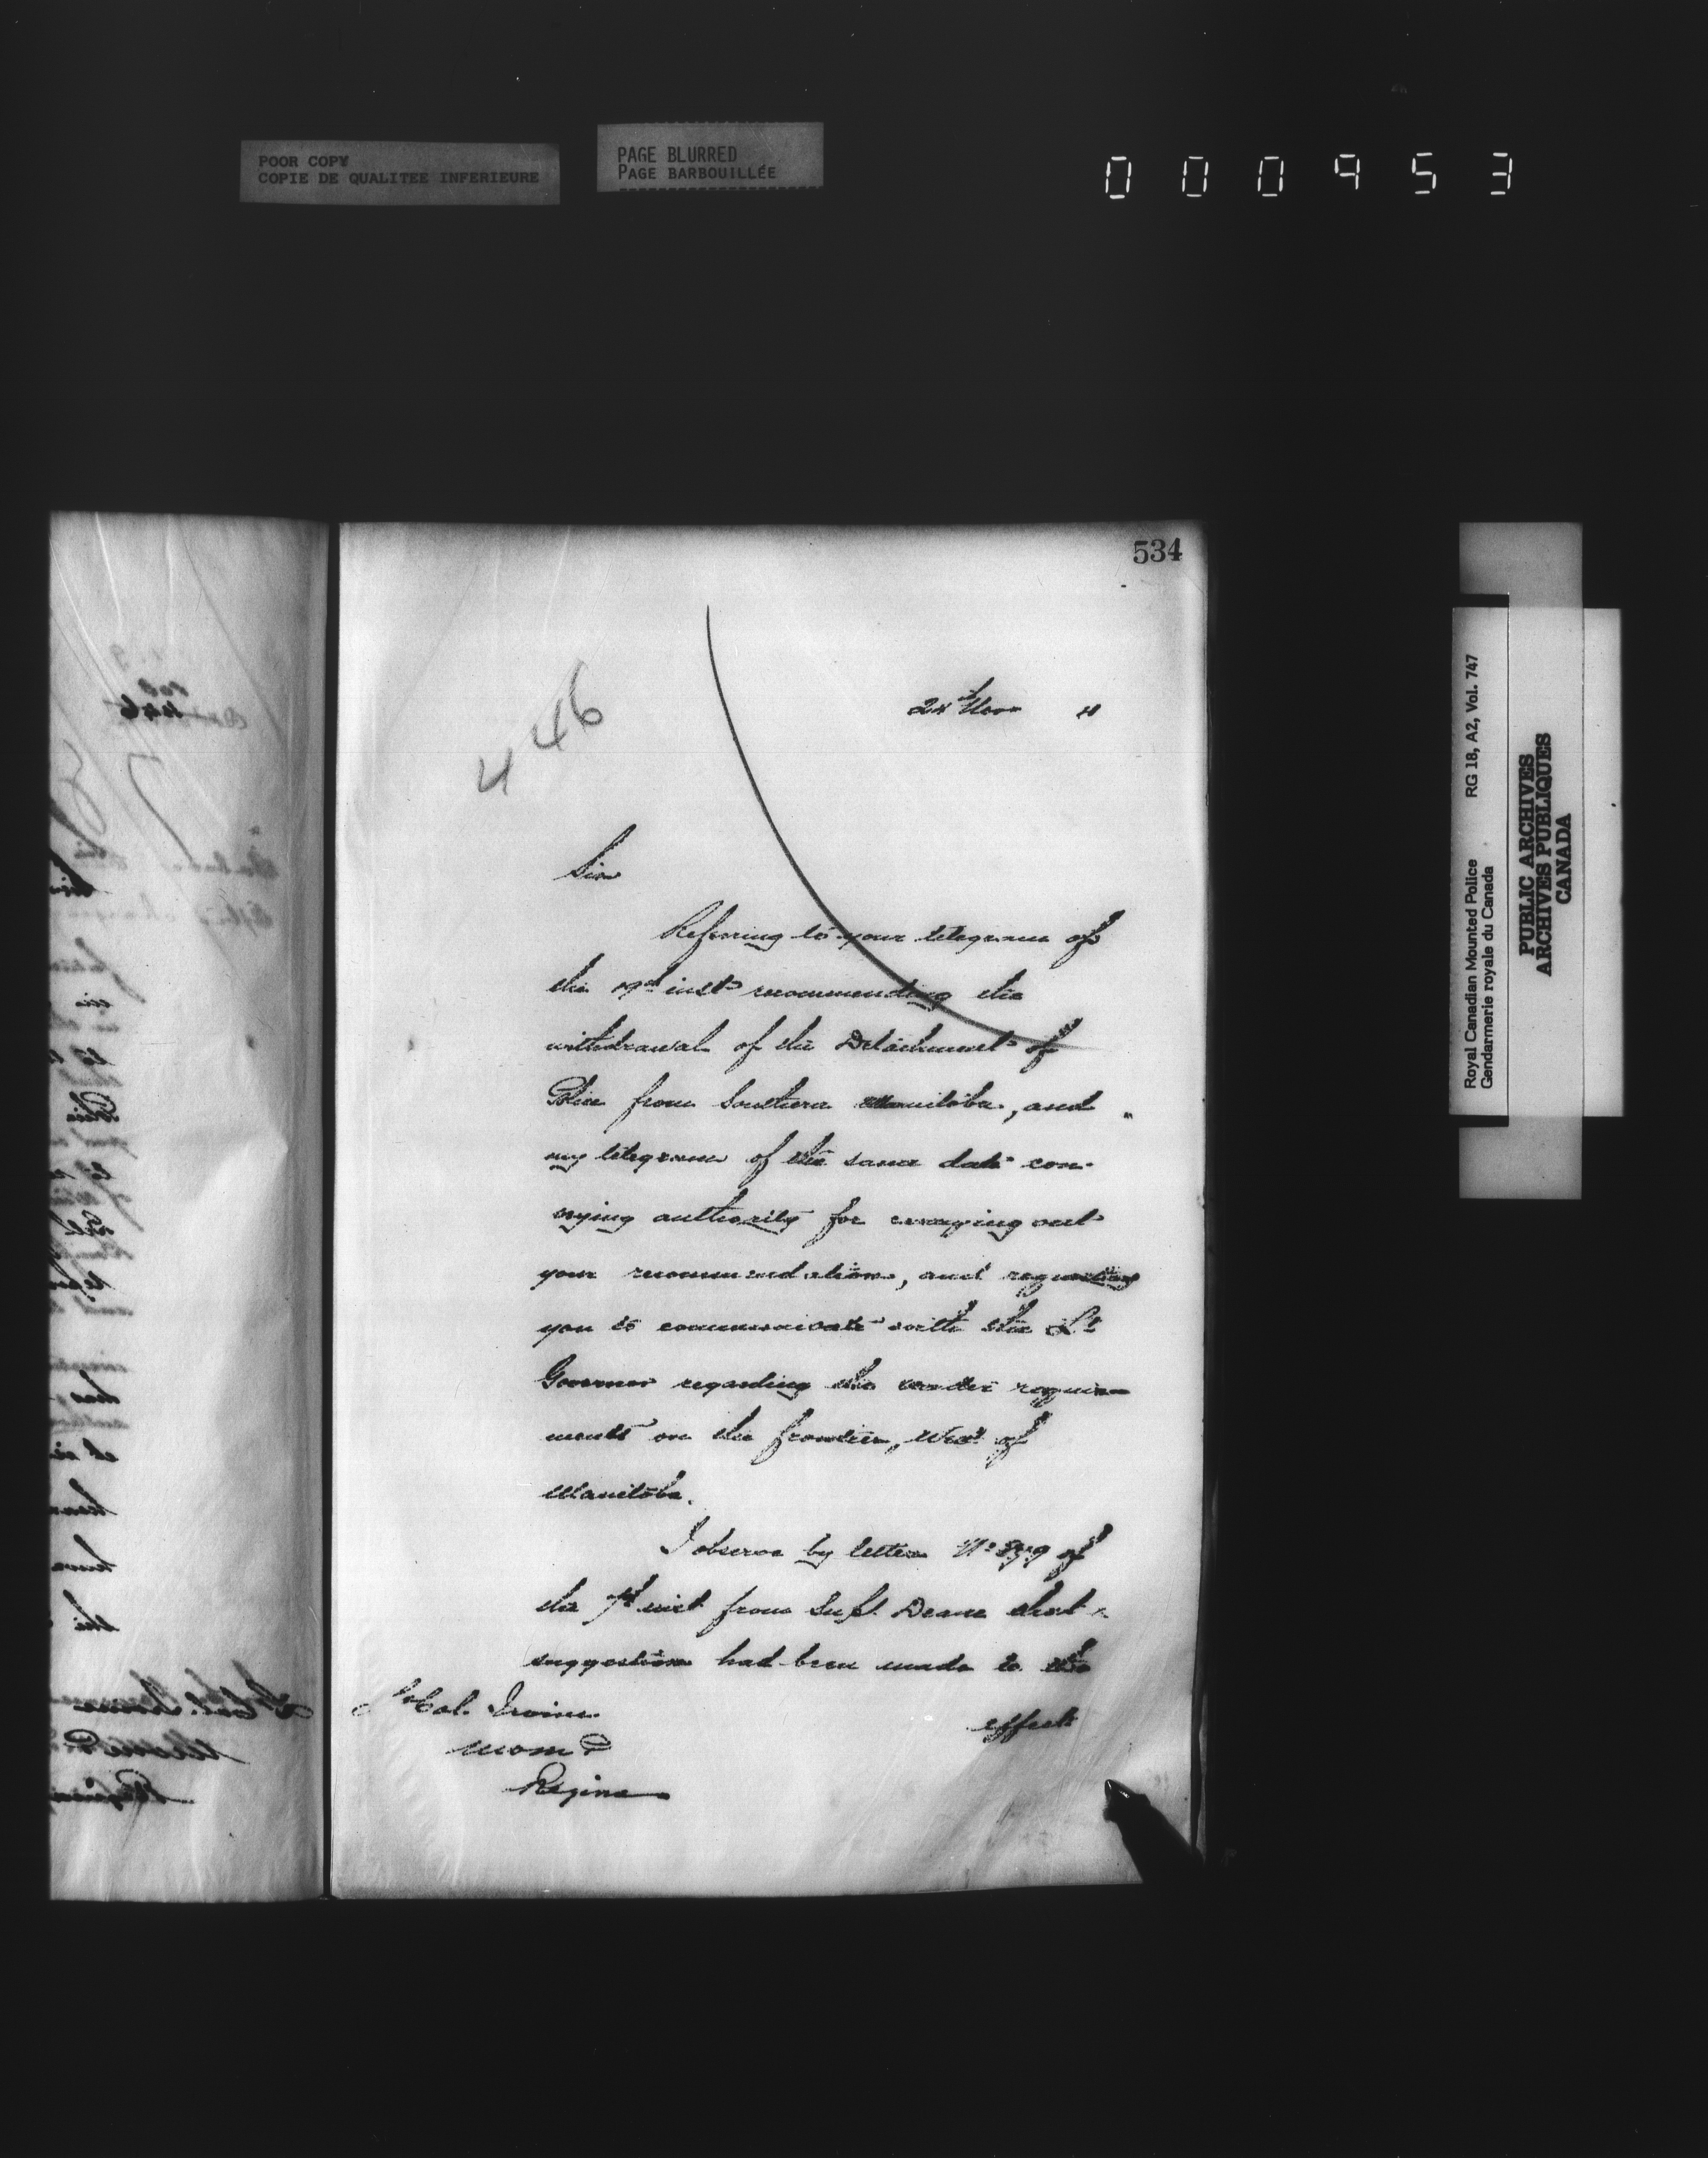 POOR COPY
COPIE DE QUALITEE INFERIEURE
PAGE BLURRED
PAGE BARBOUILLÉE
000953
534
446
24th Nov 4
Sir
Referring to your telegram of
the 19th inst recommending the
withdrawal of the Detachment of
Police from Southern Manitoba, and
my telegram of the same date con-
veying authority for carrying out
your recommendation, and requesting
you to communicate with the Lt
Governor regarding the require-
ments on the frontier, West of
Manitoba.
I observe by letter No of
the 7th inst from Supt. Deane that
suggestion had been made to the
effect
Lt Col. Irvine
Regina
Royal Canadian Mounted Police RG 18, A2, Vol. 747
Gendarmerie royale du Canada
PUBLIC ARCHIVES
ARCHIVES PUBLIQUES
CANADA